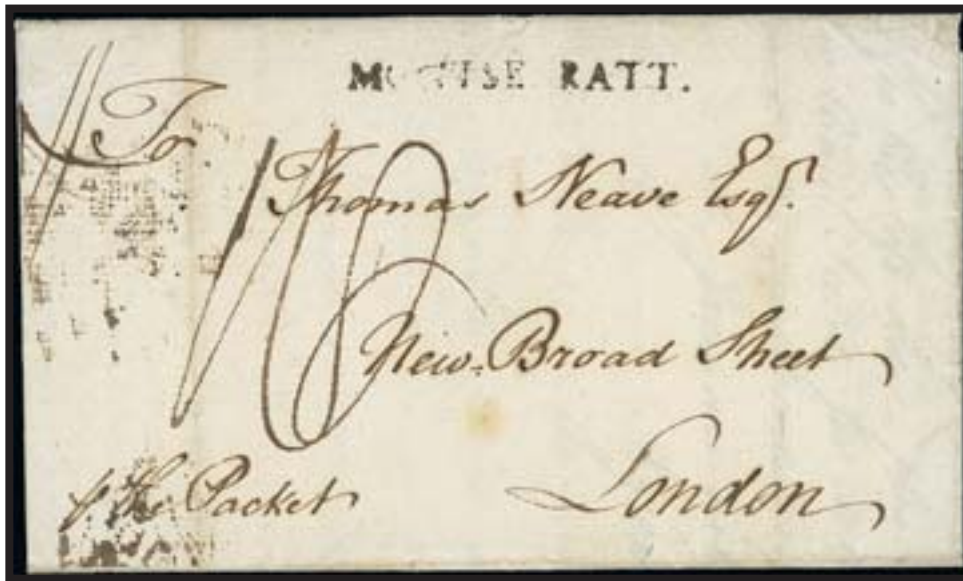 MONTSE RATT.
To
Thomas Neave Esqr.
New Broad Street
London
the Packet